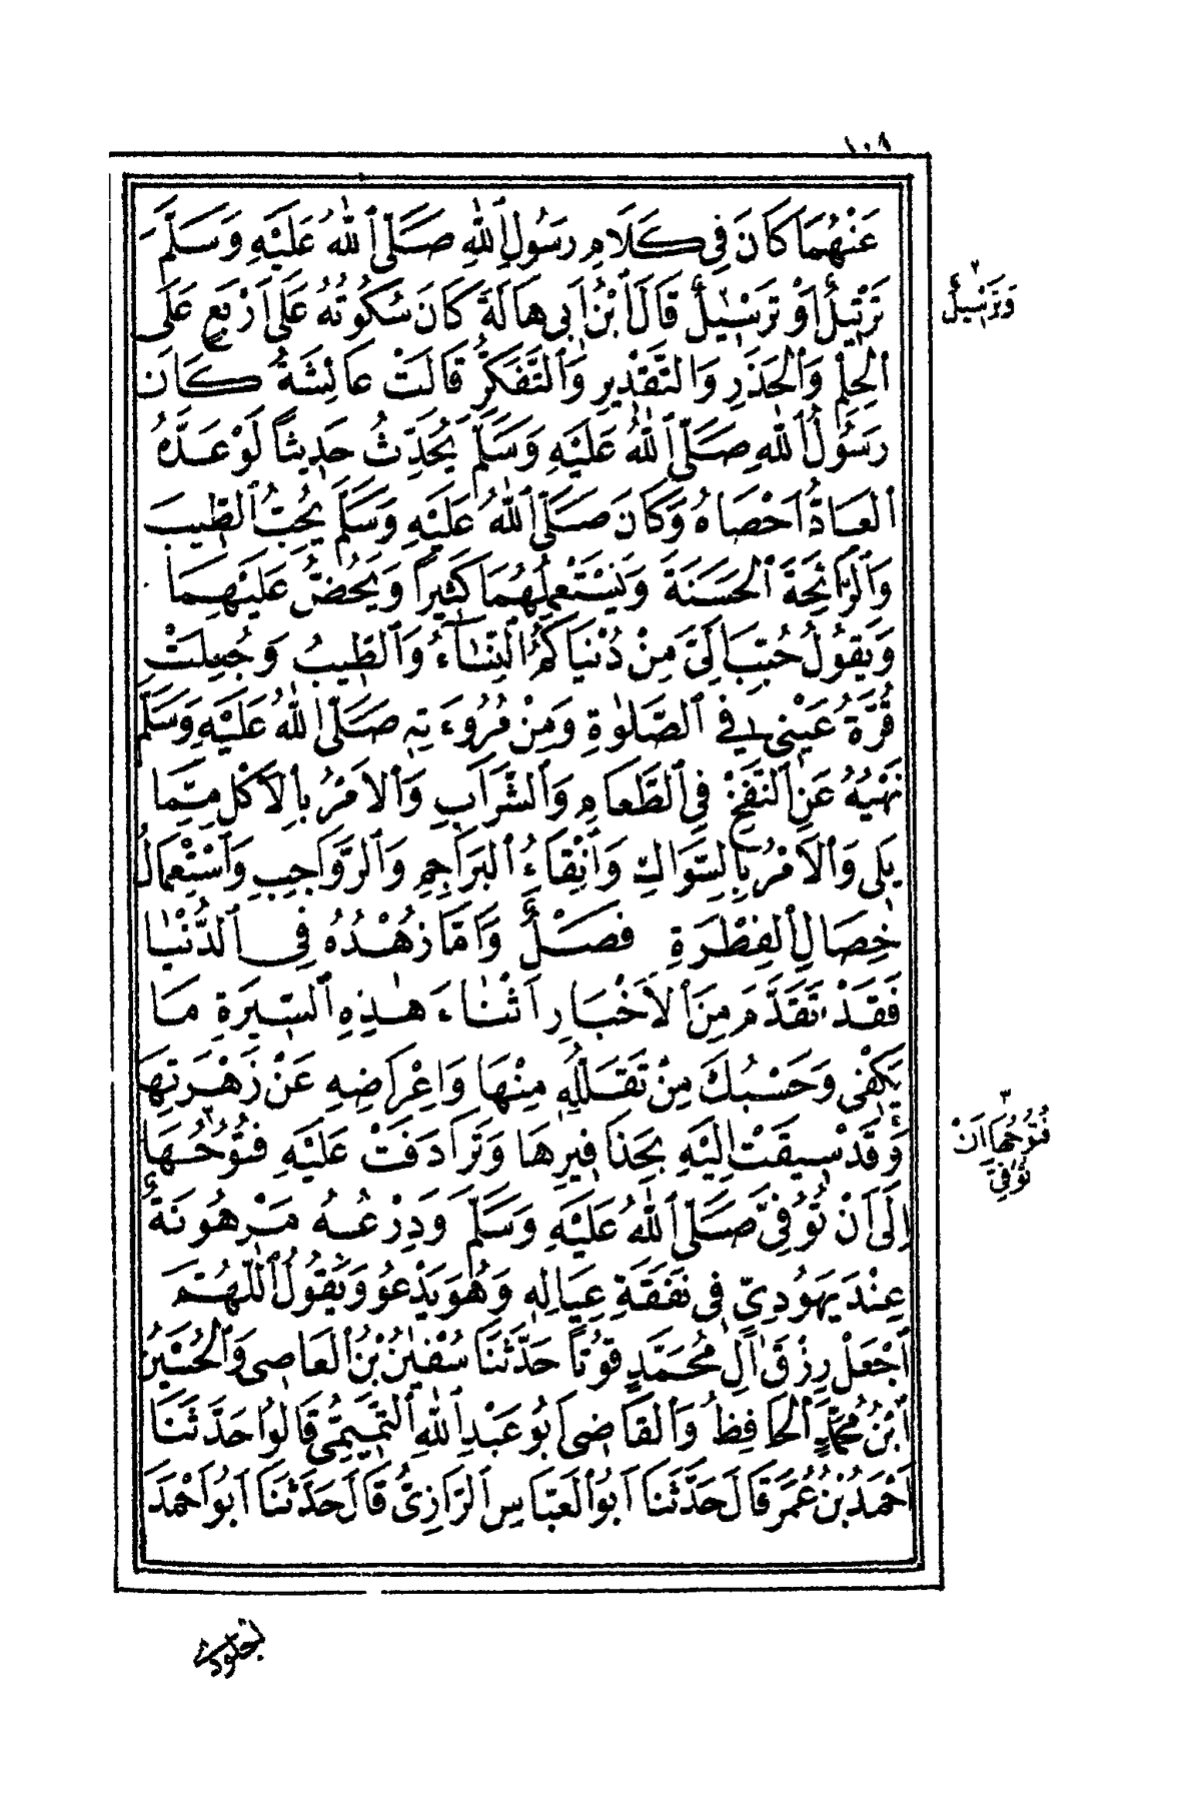 ١٠٩
عَنْهُمَا كَانَ فِي كَلَامِ رَسُولِ ٱللّٰهِ صَلَّى ٱللّٰهُ عَلَيْهِ وَسَلَّمَ
تَرْتِيلٌ اَوْ تَرْسِيلٌ قَالَ ٱبْنُ اَبِي هَالَةَ كَانَ سُكُوتُهُ عَلَى اَرْبَعٍ عَلَى
وَتَرْسِيلٌ
ٱلْحِلْمِ وَٱلْحَذَرِ وَالتَّقْدِيرِ وَٱلتَّفَكُّرِ قَالَتْ عَائِشَةُ كَانَ
رَسُولُ ٱللّٰهِ صَلَّى ٱللّٰهُ عَلَيْهِ وَسَلَّمَ يُحَدِّثُ حَدِيثًا لَوْ عَدَّهُ
ٱلْعَادُّ اَحْصَاهُ وَكَانَ صَلَّى ٱللّٰهُ عَلَيْهِ وَسَلَّمَ يُحِبُّ ٱلطِّيبَ
وَٱلرَّائِحَةَ ٱلْحَسَنَةَ وَيَسْتَعْمِلُهُمَا كَثِيرًا وَيَحُضُّ عَلَيْهِمَا
وَيَقُولُ حُبِّبَ اِلَيَّ مِنْ دُنْيَاكُمُ ٱلنِّسَاءُ وَٱلطِّيبُ وَجُعِلَتْ
قُرَّةُ عَيْنِي فِي ٱلصَّلٰوةِ وَمِنْ مُرُوءَتِهِ صَلَّى ٱللّٰهُ عَلَيْهِ وَسَلَّمَ
نَهْيُهُ عَنِ ٱلنَّفْخِ فِي ٱلطَّعَامِ وَٱلشَّرَابِ وَٱلْاَمْرُ بِٱلْاَكْلِ مِمَّا
يَلِي وَٱلْاَمْرُ بِٱلسِّوَاكِ وَاِنْقَاءُ ٱلْبَرَاجِمِ وَٱلرَّوَاجِبِ وَٱسْتِعْمَالُ
خِصَالِ ٱلْفِطْرَةِ فَصْلٌ وَاَمَّا زُهْدُهُ فِي ٱلدُّنْيَا
فَقَدْ تَقَدَّمَ مِنَ ٱلْاَخْبَارِ اَثْنَاءَ هٰذِهِ ٱلسِّيرَةِ مَا
يَكْفِي وَحَسْبُكَ مِنْ تَقَلُّلِهِ مِنْهَا وَاِعْرَاضِهِ عَنْ زَهْرَتِهَا
وَقَدْ سِيقَتْ اِلَيْهِ بِحَذَافِيرِهَا وَتَرَادَفَتْ عَلَيْهِ فُتُوحُهَا
فُتُوحُهَا اَنْ
تُوُفِّيَ
اِلَى اَنْ تُوُفِّيَ صَلَّى ٱللّٰهُ عَلَيْهِ وَسَلَّمَ وَدِرْعُهُ مَرْهُونَةٌ
عِنْدَ يَهُودِيٍّ فِي نَفَقَةِ عِيَالِهِ وَهُوَ يَدْعُو وَيَقُولُ ٱللّٰهُمَّ
ٱجْعَلْ رِزْقَ اٰلِ مُحَمَّدٍ قُوتًا حَدَّثَنَا سُفْيٰنُ بْنُ ٱلْعَاصِي وَٱلْحُسَيْنُ
ٱبْنُ مُحَمَّدٍ ٱلْحَافِظُ وَٱلْقَاضِي اَبُو عَبْدِ ٱللّٰهِ ٱلتَّمِيمِيُّ قَالُوا حَدَّثَنَا
اَحْمَدُ بْنُ عُمَرَ قَالَ حَدَّثَنَا اَبُو ٱلْعَبَّاسِ ٱلرَّازِيُّ قَالَ حَدَّثَنَا اَبُو اَحْمَدَ